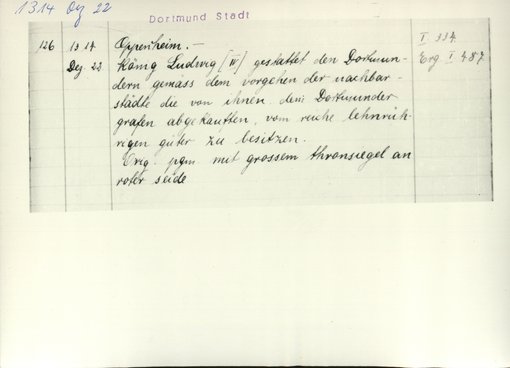 1314 Dez 22
Dortmund Stadt
126 1314 Oppenheim. – I 334
Dez 22 König Ludwig [IV] gestattet den Dortmun- Erg I 487
dern gemäss dem vorgehen der nachbar-
städte die von ihnen dem Dortmunder
grafen abgekauften, vom reiche lehnrüh-
rigen güter zu besitzen.
Orig. pgm. mit grossem thronsiegel an
roter seide